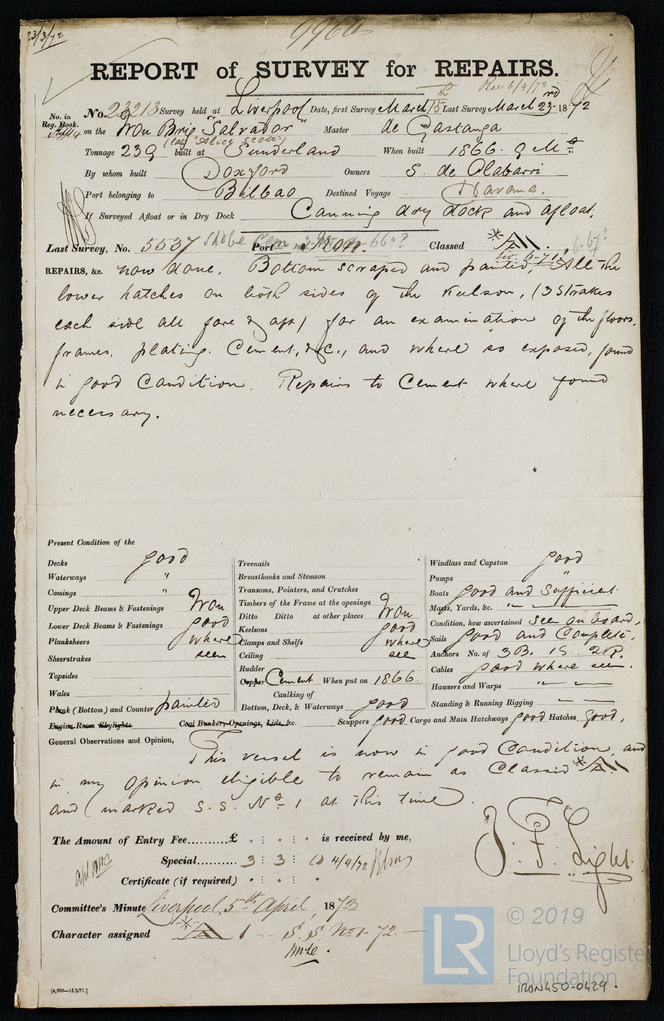 23/3/72
9960
REPORT of SURVEY for REPAIRS.
Rec 6/4/72
No. in Reg. Book.
No. 23213 Survey held at Liverpool Date, first Survey March 15th Last Survey March 23rd 1872
on the Iron Brig "Salvador" Master de Gastanga
(late "Alice
Tonnage 239 built at Sunderland When built 1866. 9 Mo
By whom built Doxford Owners S. de Olabarri
Port belonging to Bilbao Destined Voyage Havana.
If Surveyed Afloat or in Dry Dock Canning dry dock and afloat.
Last Survey, No. 5537 Port Classed
REPAIRS, &c. now done. Bottom scraped and painted. All the
lower hatches on both sides of the Keelson, (3 Strakes
each side all fore & aft) for an examination of the floors,
frames, plating, Cement, &c., and where so exposed, found
in good Condition. Repairs to Cement where found
necessary.
Present Condition of the
Decks good
Waterways "
Comings "
Upper Deck Beams & Fastenings Iron
Lower Deck Beams & Fastenings good
Planksheers where
Sheerstrakes seen
Topsides
Wales
Plank (Bottom) and Counter painted
Engine Room Skylights Coal Bunker, Openings, Lids, &c.
Treenails
Breasthooks and Stemson
Transoms, Pointers, and Crutches
Timbers of the Frame at the openings Iron
Ditto Ditto at other places
Keelsons good
Clamps and Shelfs where
Ceiling see
Rudder
Copper Cement When put on 1866
Caulking of
Bottom, Deck, & Waterways good
Scuppers good Cargo and Main Hatchways good Hatches good.
Windlass and Capstan good
Pumps "
Boats good and Sufficient
Masts, Yards, &c. " — " —
Condition, how ascertained See on board.
Sails good and Complete.
Anchors No. of 3B. 1S. 2K.
Cables good where seen.
Hawsers and Warps " — " —
Standing & Running Rigging " — " —
General Observations and Opinion,
This vessel is now in good Condition, and
in my opinion eligible to remain as Classed
and marked S.S. No 1 at this time.
J. F. Light.
The Amount of Entry Fee......... £ : : is received by me,
Special.......... 3 : 3 : 0 4/4/72
Certificate (if required) : :
Committee's Minute Liverpool, 5th April, 1872
Character assigned 1 - S.S No 1-72 -
[4,000—13/2/71.]
LR
© 2019
Lloyd's Register
Foundation
IRON450-0429.